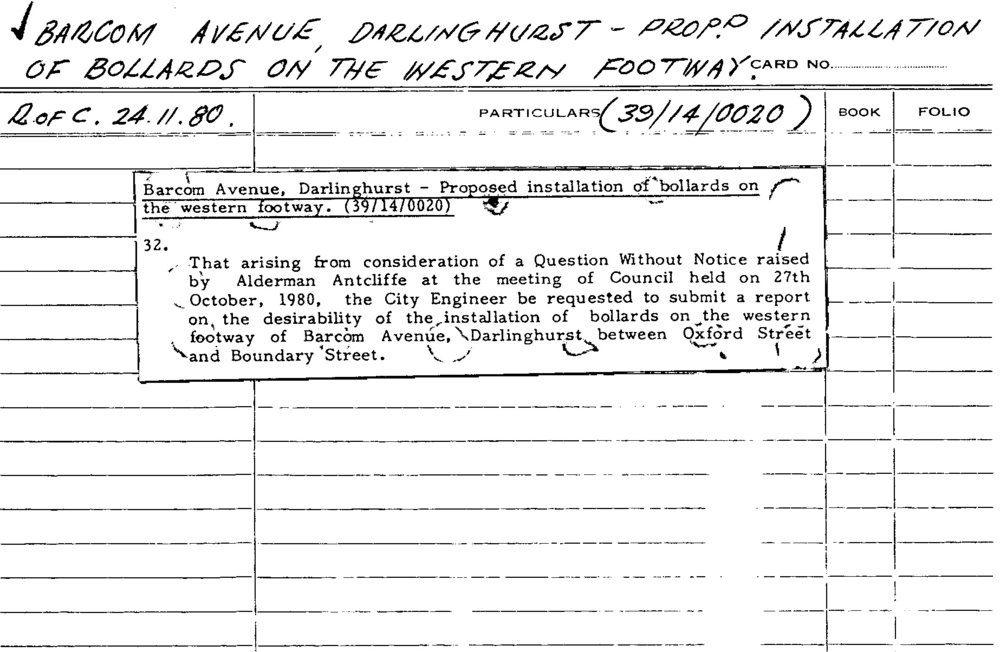 BARCOM AVENUE, DARLINGHURST - PROP.D INSTALLATION
OF BOLLARDS ON THE WESTERN FOOTWAY. CARD NO.
R OF C. 24.11.80. PARTICULARS (39/14/0020) BOOK FOLIO
Barcom Avenue, Darlinghurst - Proposed installation of bollards on
the western footway. (39/14/0020)
32.
That arising from consideration of a Question Without Notice raised
by Alderman Antcliffe at the meeting of Council held on 27th
October, 1980, the City Engineer be requested to submit a report
on the desirability of the installation of bollards on the western
footway of Barcom Avenue, Darlinghurst between Oxford Street
and Boundary Street.